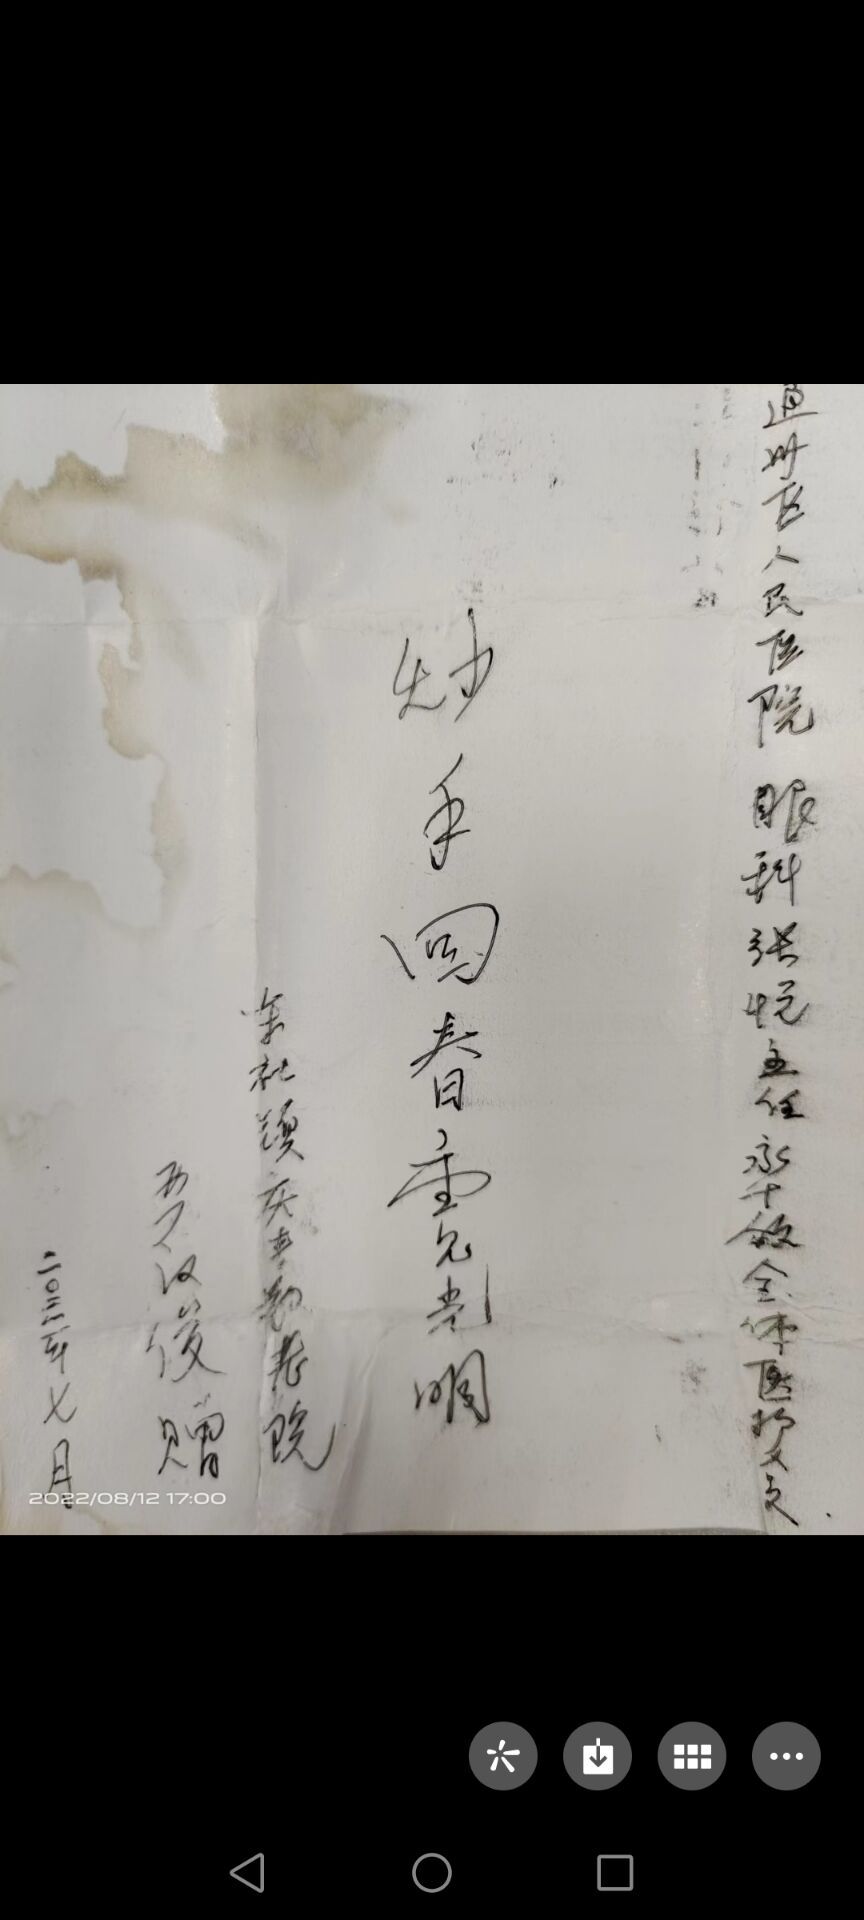 通州区人民医院 眼科张悦主任 率领全体医护人员
妙手回春重见光明
余社镇夭寿敬老院
汉俊赠
二〇二二年七月
2022/08/12 17:00